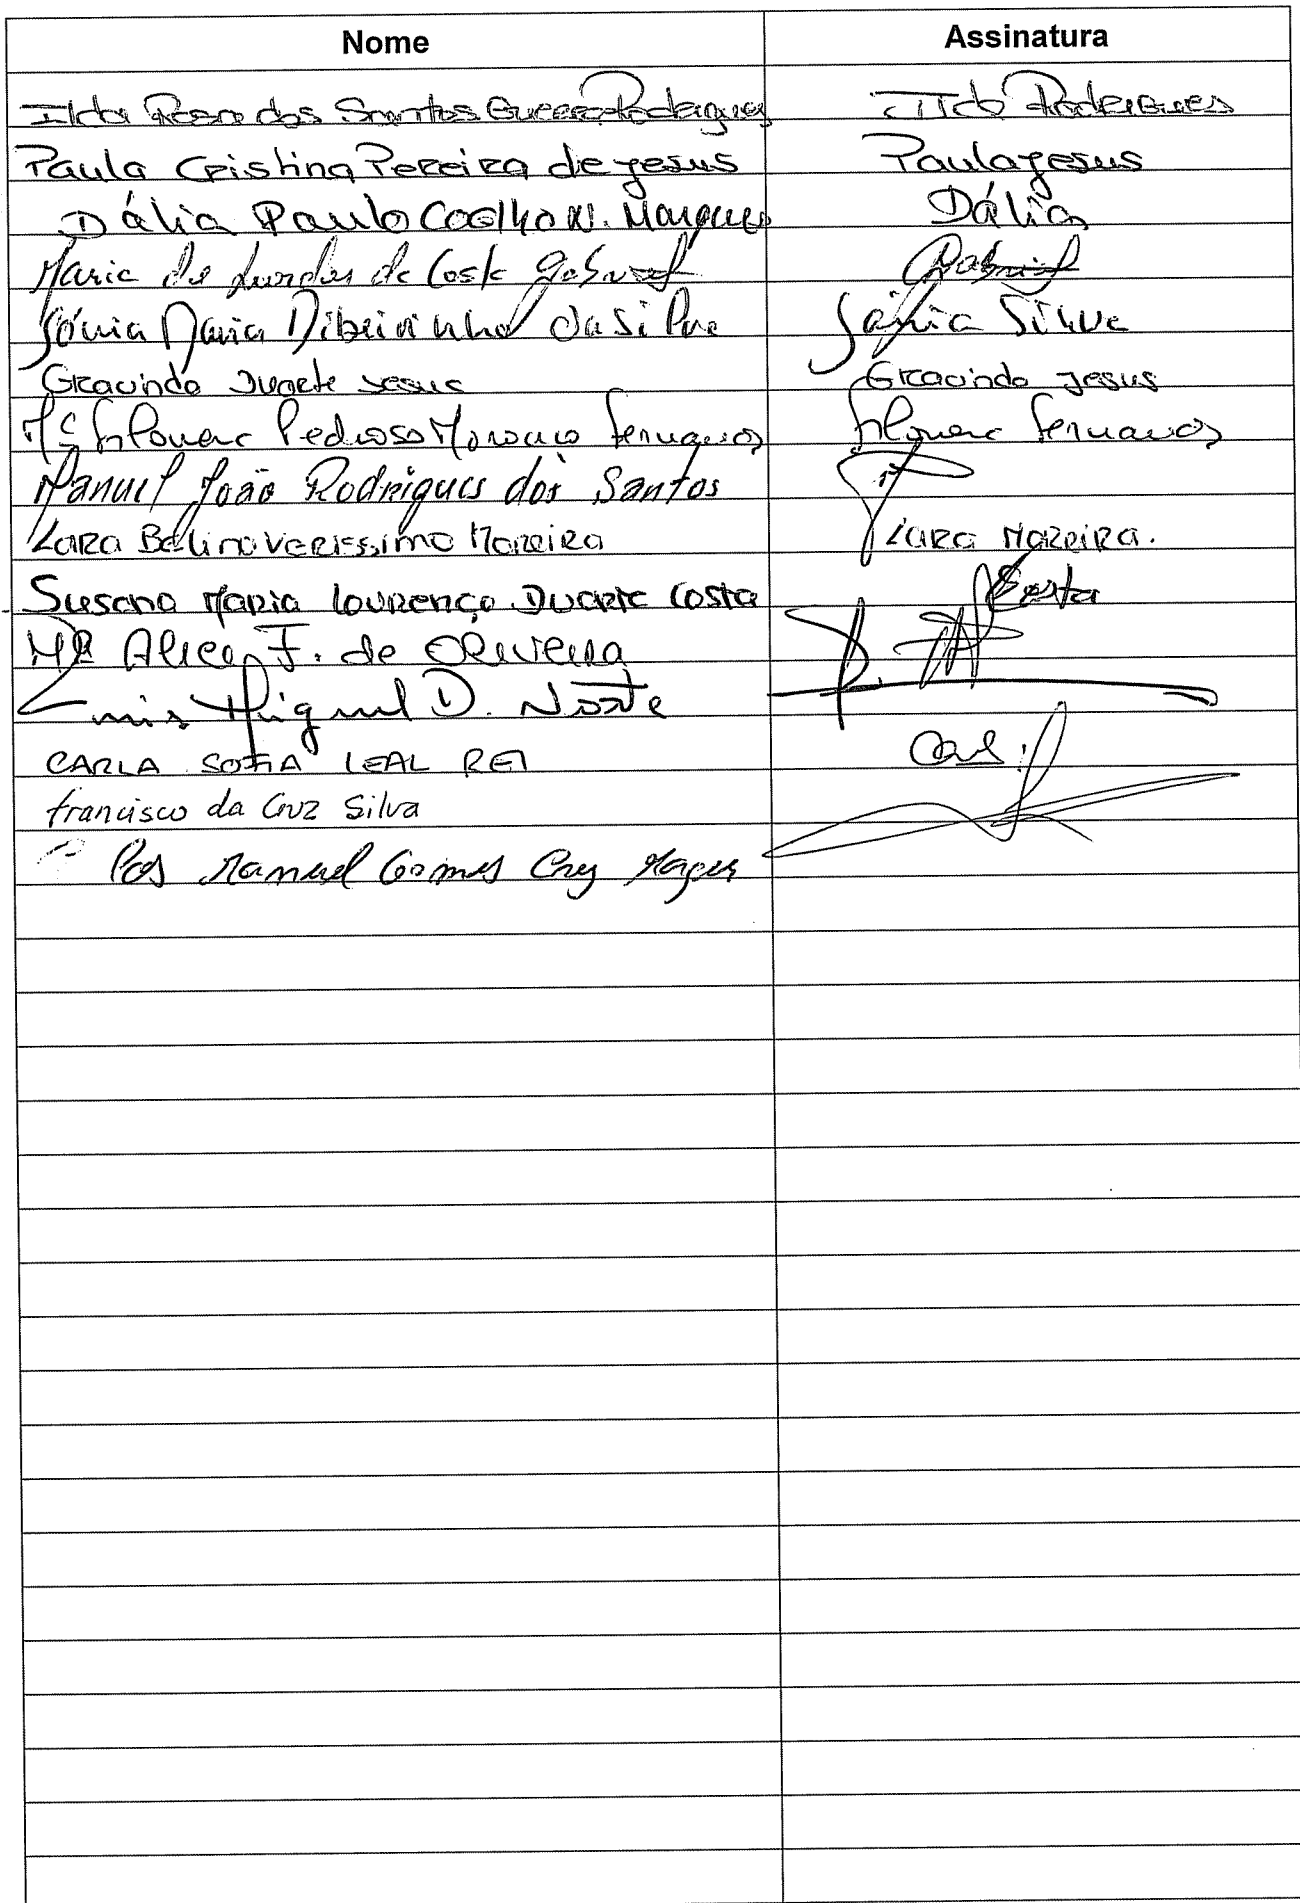 Nome Assinatura
Ilda Rosa dos Santos Rodrigues Ilda Rodrigues
Paula Cristina Pereira de Jesus Paula Jesus
Dália Paulo Coelho N. Marques Dália
Maria de Lurdes da Costa Gabriel Gabriel
Sónia Maria Ribeirinho da Silva Sónia Silva
Gracinda Duarte Jesus Gracinda Jesus
Mª Filomena Pedroso Fernandes Filomena Fernandes
Manuel João Rodrigues dos Santos
Lara Belino Veríssimo Moreira Lara Moreira.
Susana Maria Lourenço Duarte Costa Costa
Mª Alice F. de Oliveira
Luis Miguel D. Norte
CARLA SOFIA LEAL REI
francisco da Cruz Silva
Manuel Gomes Cruz